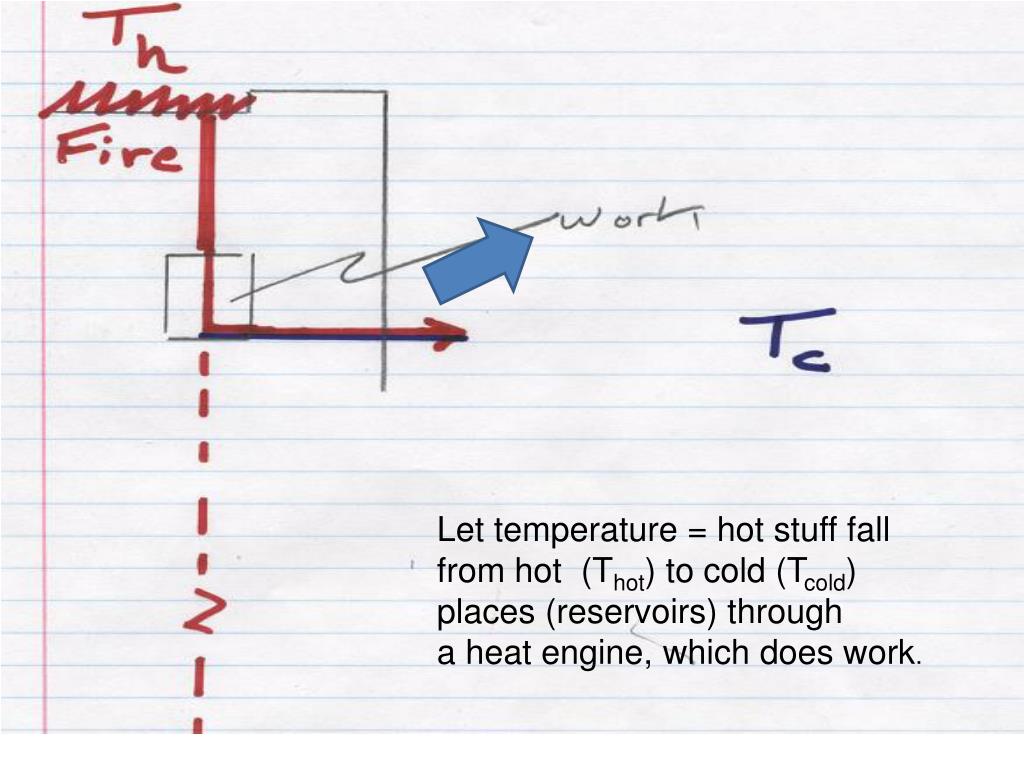 Th
Fire
work
Tc
Let temperature = hot stuff fall
from hot (Thot) to cold (Tcold)
places (reservoirs) through
a heat engine, which does work.